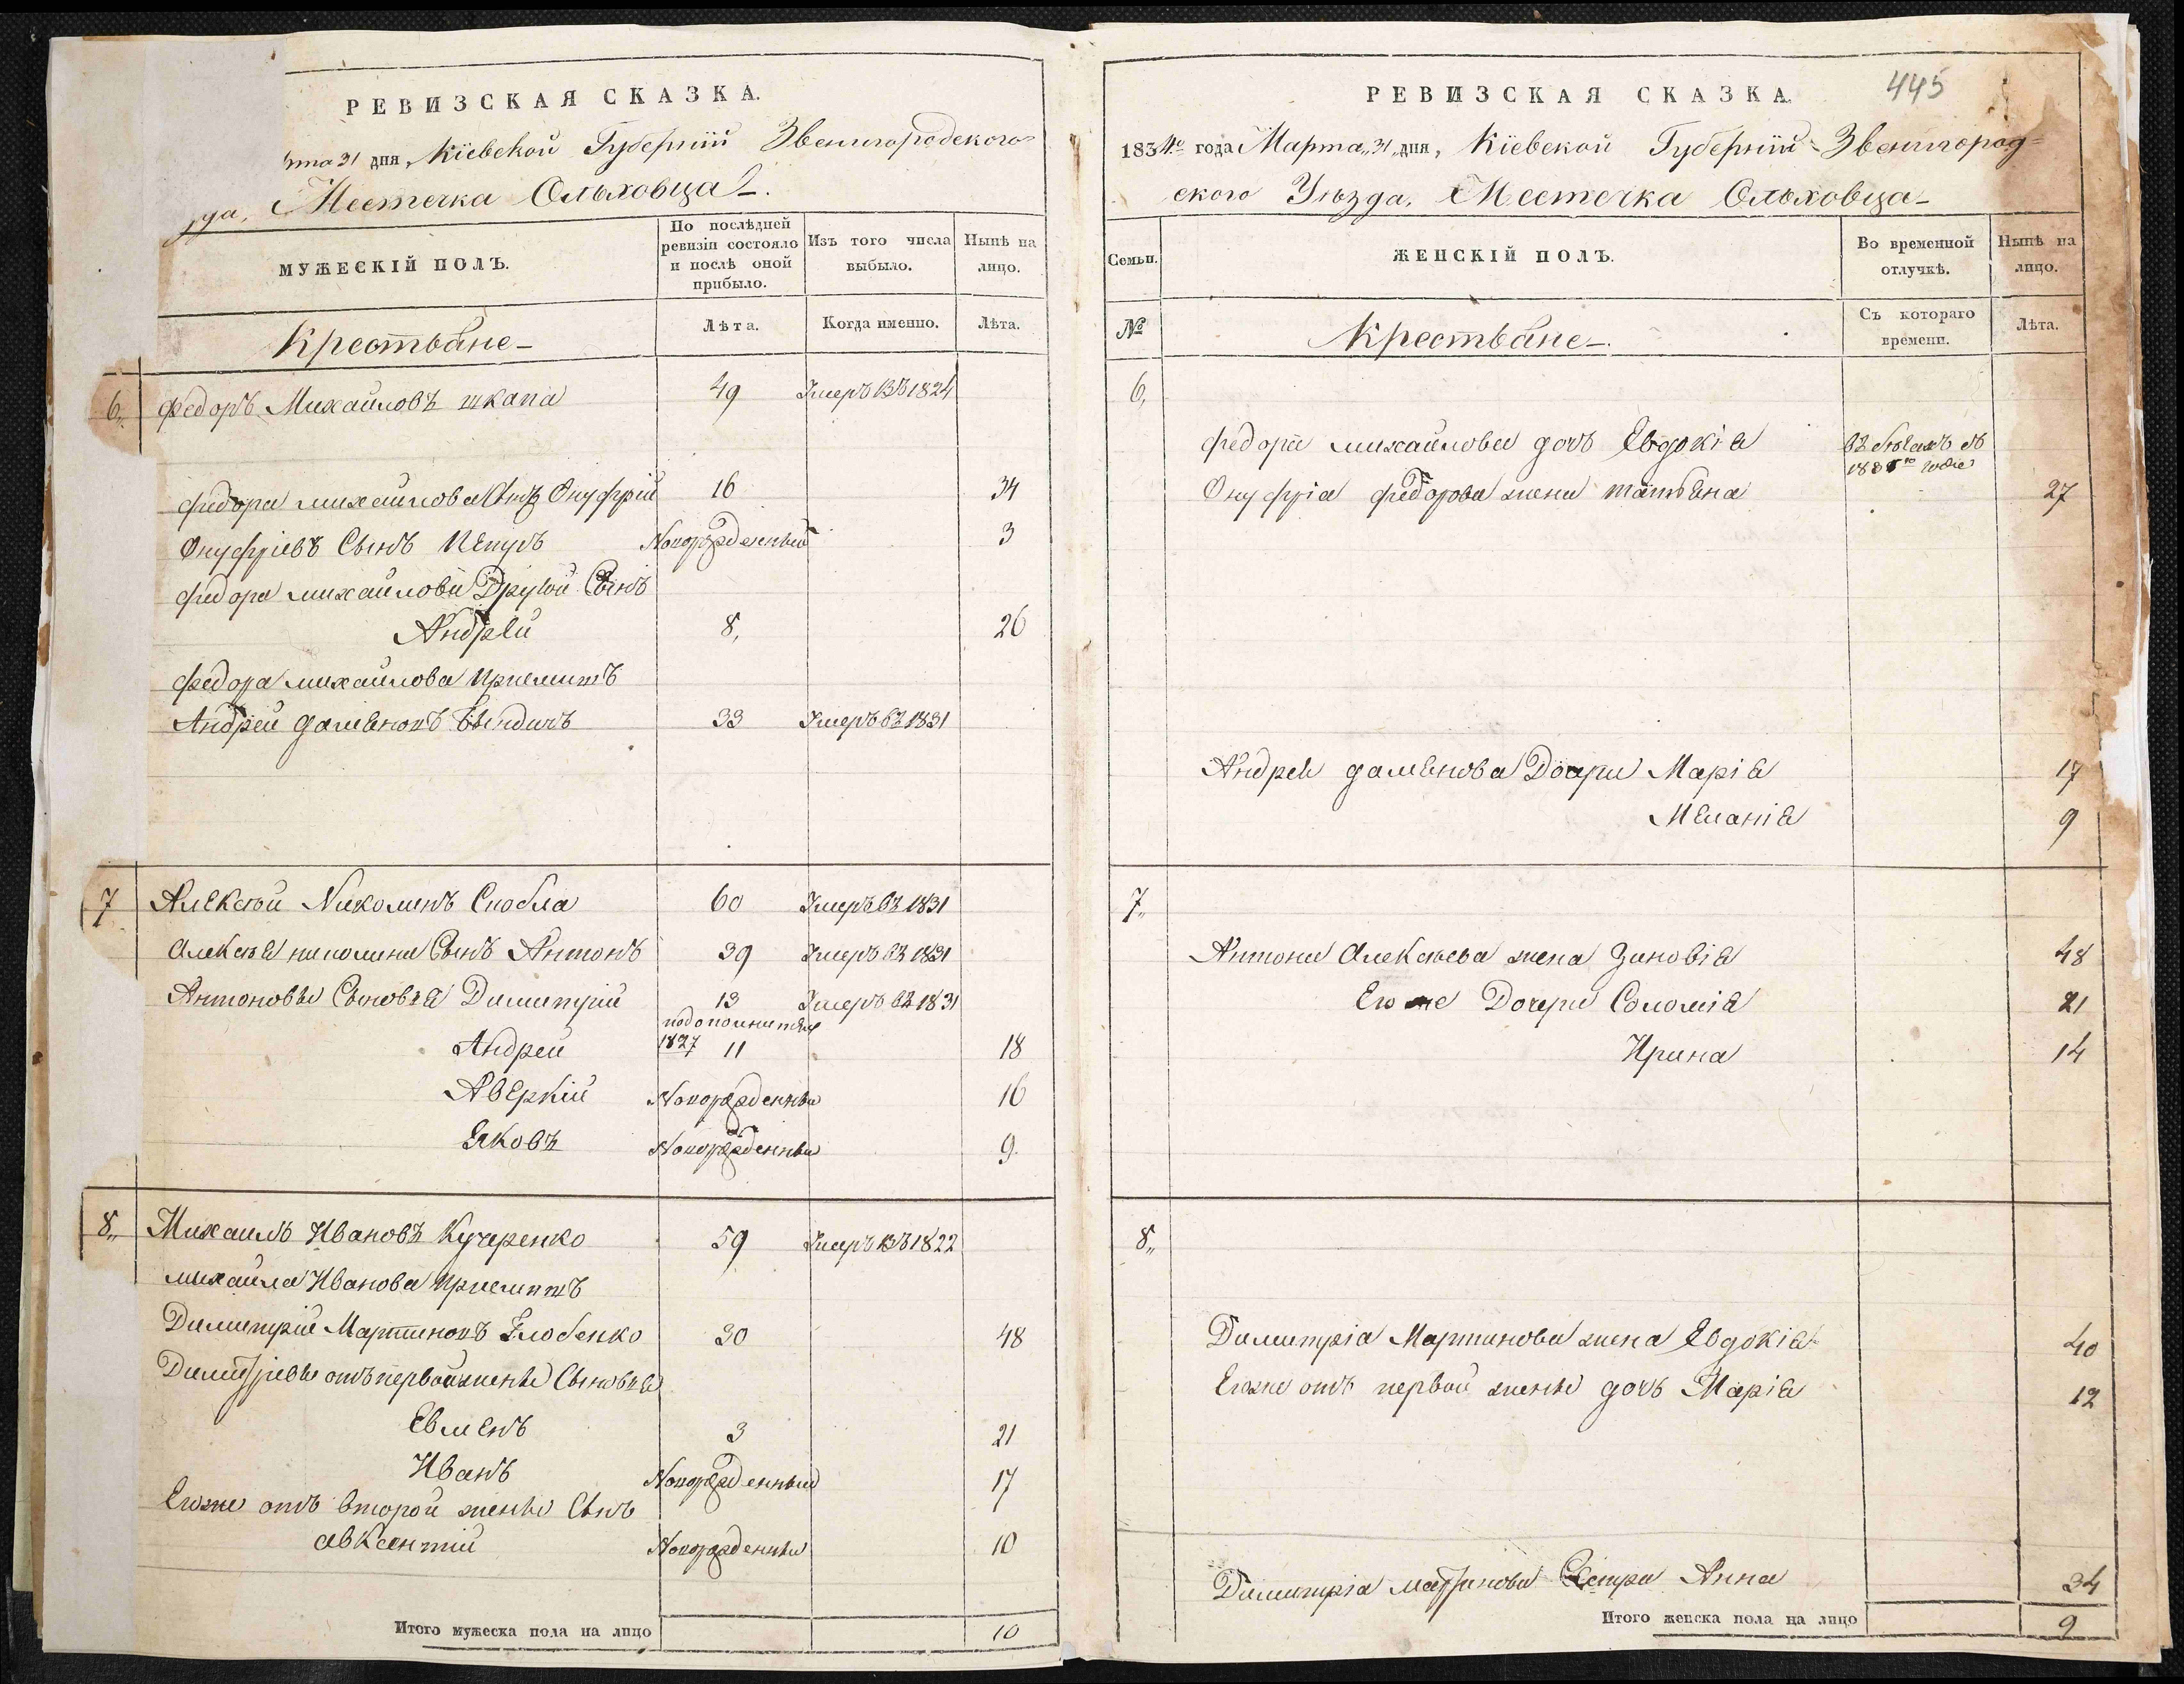 РЕВИЗСКАЯ СКАЗКА.
рта 31 дня, Кіевской Губерніи Звенигородского
зда, Месточка Ольховца
МУЖЕСКІЙ ПОЛЪ.
По послѣдней ревизіи состояло и послѣ оной прибыло.
Изъ того числа выбыло.
Нынѣ на лицо.
Крестьяне
Лѣта.
Когда именно.
Лѣта.
6, Федоръ Михайловъ шкапа 49 Умеръ въ 1824
Федора михайлова Сынъ Онуфрій 16 34
Онуфріевъ Сынъ Петръ Новорожденный 3
Федора михайлова Другой Сынъ
Андрей 8, 26
Федора михайлова приемышъ
Андрей 33 Умеръ въ 1831
7 Алексѣй Николинъ 60 Умеръ въ 1831
Алексѣя николина Сынъ Антонъ 39 Умеръ въ 1831
Антоновы Сыновья Димитрій 13 Умеръ въ 1831
Андрей 1827 11 18
Аверкій Новорожденны 16
Яковъ Новорожденны 9
8,, Михаилъ Ивановъ Кучеренко 59 Умеръ въ 1822
михаила Иванова приемышъ
Димитрій Мартиновъ 30 48
Димитріевы отъ первой жены Сыновья
Евменъ 3 21
Иванъ Новорожденный 17
Егоже отъ второй жены Сынъ
авксентій Новорожденны 10
Итого мужеска пола на лицо 10
РЕВИЗСКАЯ СКАЗКА.
445
1834го года Марта „31„ дня, Кіевской Губерніи Звенигород=
ского Уѣзда. Месточка Ольховца
Семьи.
ЖЕНСКІЙ ПОЛЪ.
Во временной отлучкѣ.
Нынѣ на лицо.
№
Крестьяне
Съ котораго времени.
Лѣта.
6,
Федора михайлова дочь Евдокія въ бѣгахъ съ
года
Онуфрія федорова жена татьяна 27
Андрея Дочери Марія 17
Меланія 9
7,,
Антона Алексѣева жена Зиновія 48
Его же Дочери Соломія 21
Ирина 14
8,,
Димитрія Мартинова жена Евдокія 40
Егоже отъ первой жены дочь Марія 12
Димитрія мартинова Сестра Анна 34
Итого женска пола на лицо 9